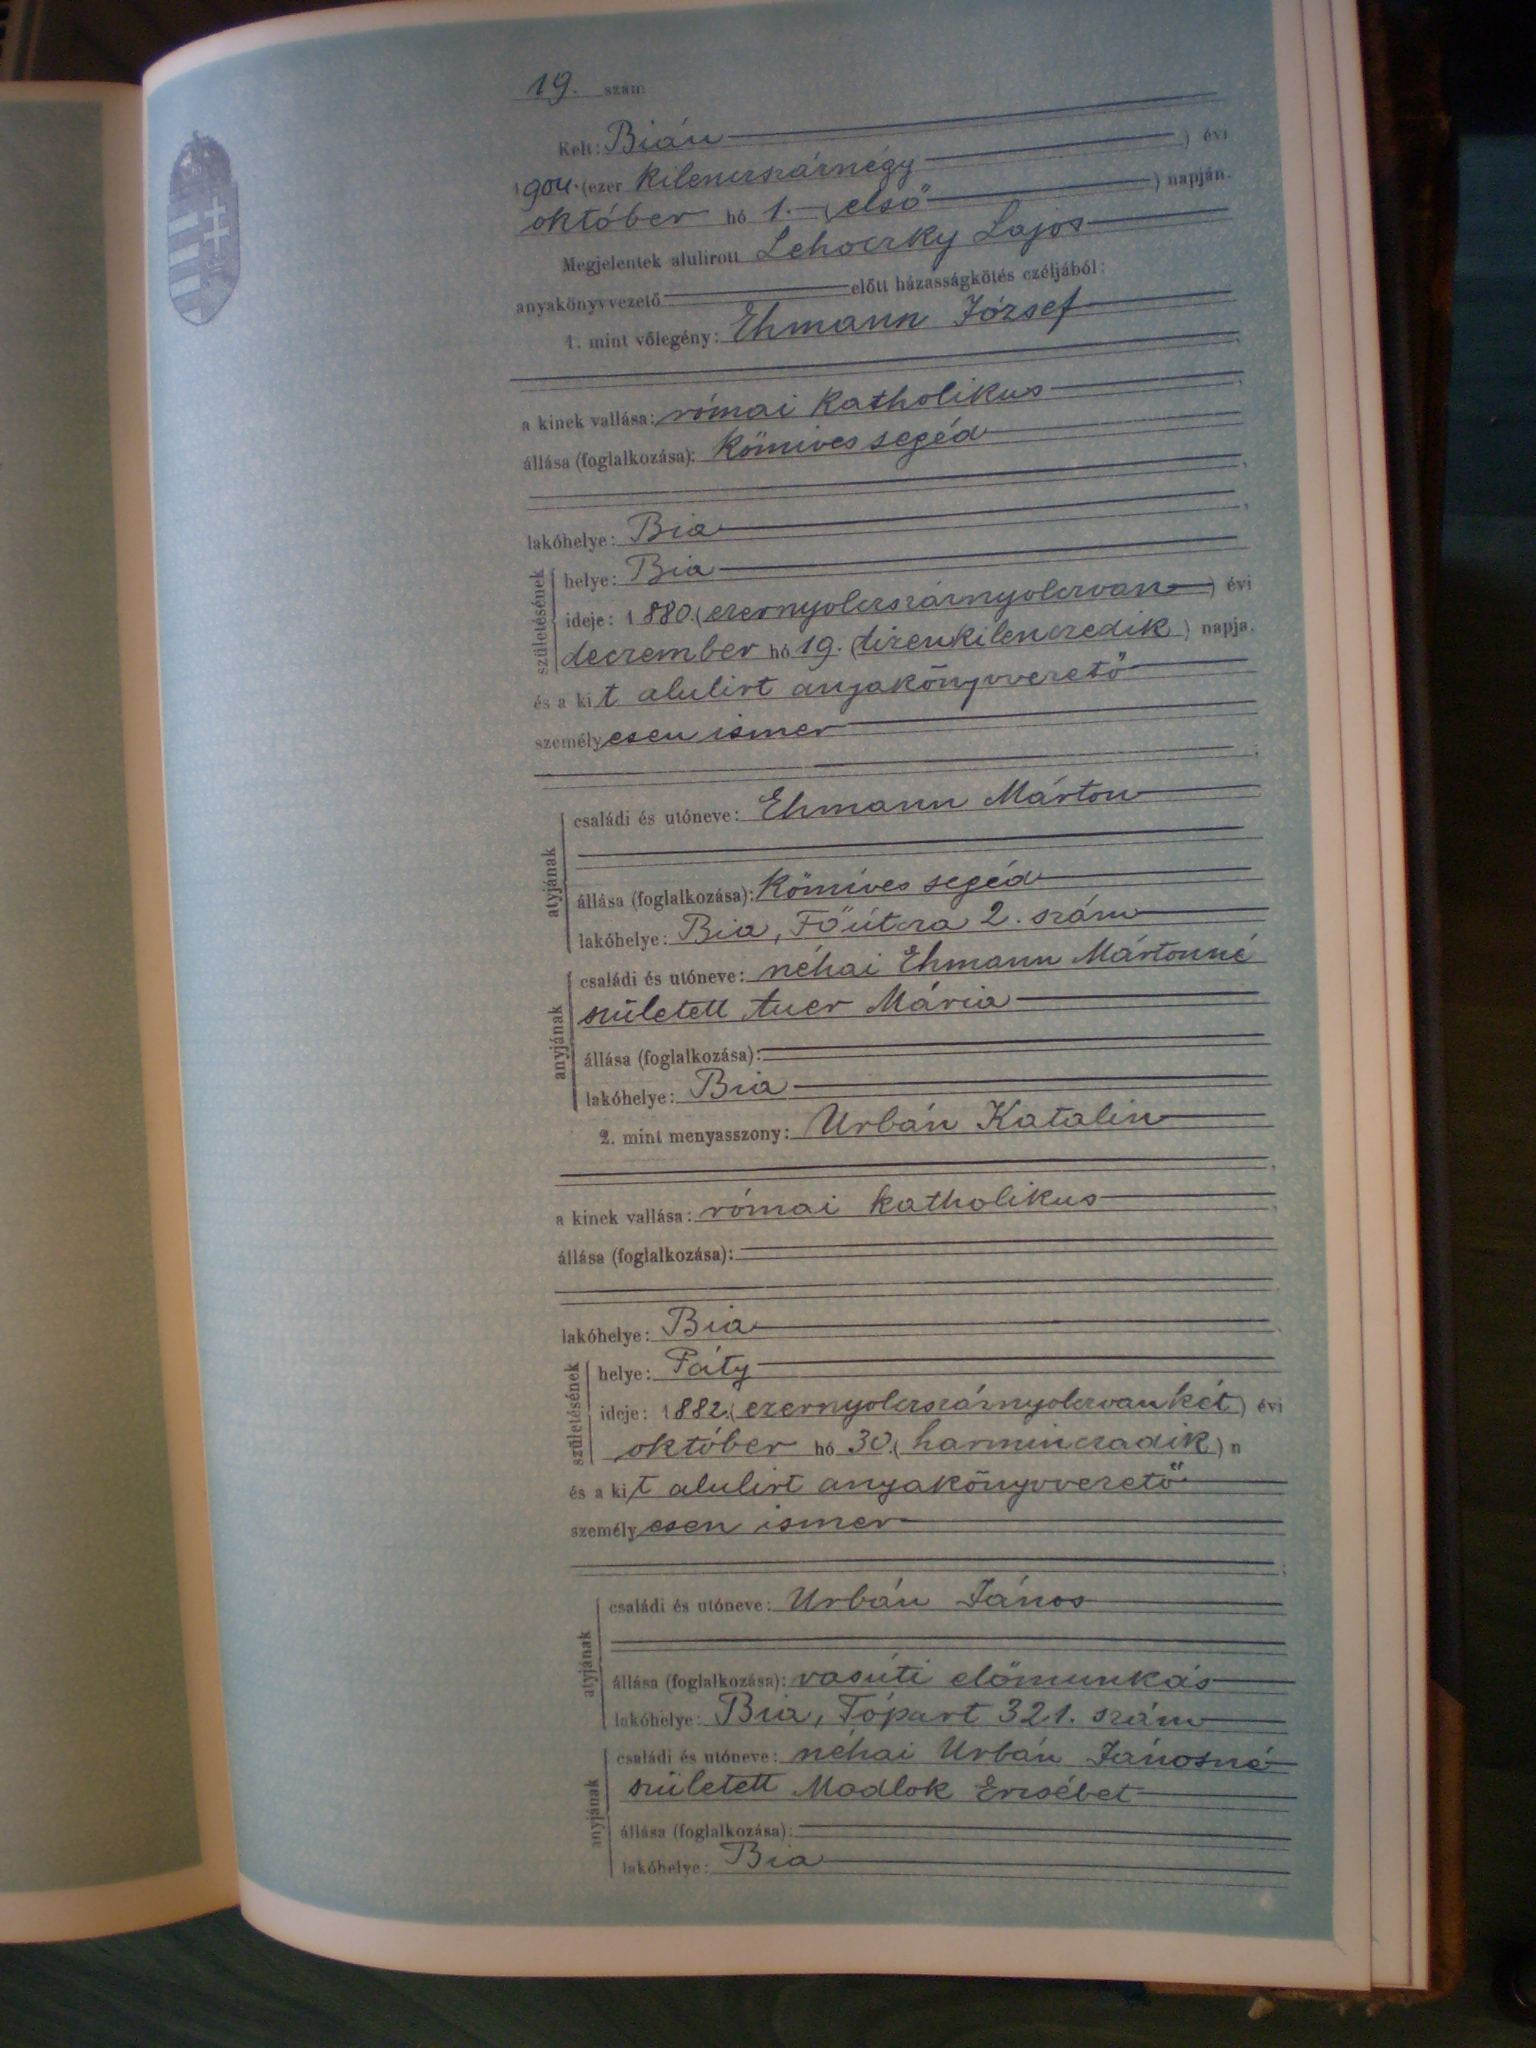 19. szám
Kelt: Bián
1904. (ezer kilenczszáznégy) évi
október hó 1. (első) napján.
Megjelentek alulirott Lehoczky Lajos
anyakönyvvezető előtt házasságkötés czéljából:
1. mint vőlegény: Ehmann József
a kinek vallása: római katholikus
állása (foglalkozása): kőmives segéd
lakóhelye: Bia
születésének
helye: Bia
ideje: 1880. (ezernyolczszáznyolczvan) évi
deczember hó 19. (tizenkilenczedik) napja,
és a kit alulirt anyakönyvvezető
személyesen ismer
atyjának
családi és utóneve: Ehmann Márton
állása (foglalkozása): kőmives segéd
lakóhelye: Bia, Főútcza 2. szám
anyjának
családi és utóneve: néhai Ehmann Mártonné
született Auer Mária
állása (foglalkozása):
lakóhelye: Bia
2. mint menyasszony: Urbán Katalin
a kinek vallása: római katholikus
állása (foglalkozása):
lakóhelye: Bia
születésének
helye: Páty
ideje: 1882. (ezernyolczszáznyolczvankét) évi
október hó 30. (harminczadik) n
és a kit alulirt anyakönyvvezető
személyesen ismer
atyjának
családi és utóneve: Urbán János
állása (foglalkozása): vasúti előmunkás
lakóhelye: Bia, Tópart 321. szám
anyjának
családi és utóneve: néhai Urbán Jánosné
született Madlok Erzsébet
állása (foglalkozása):
lakóhelye: Bia